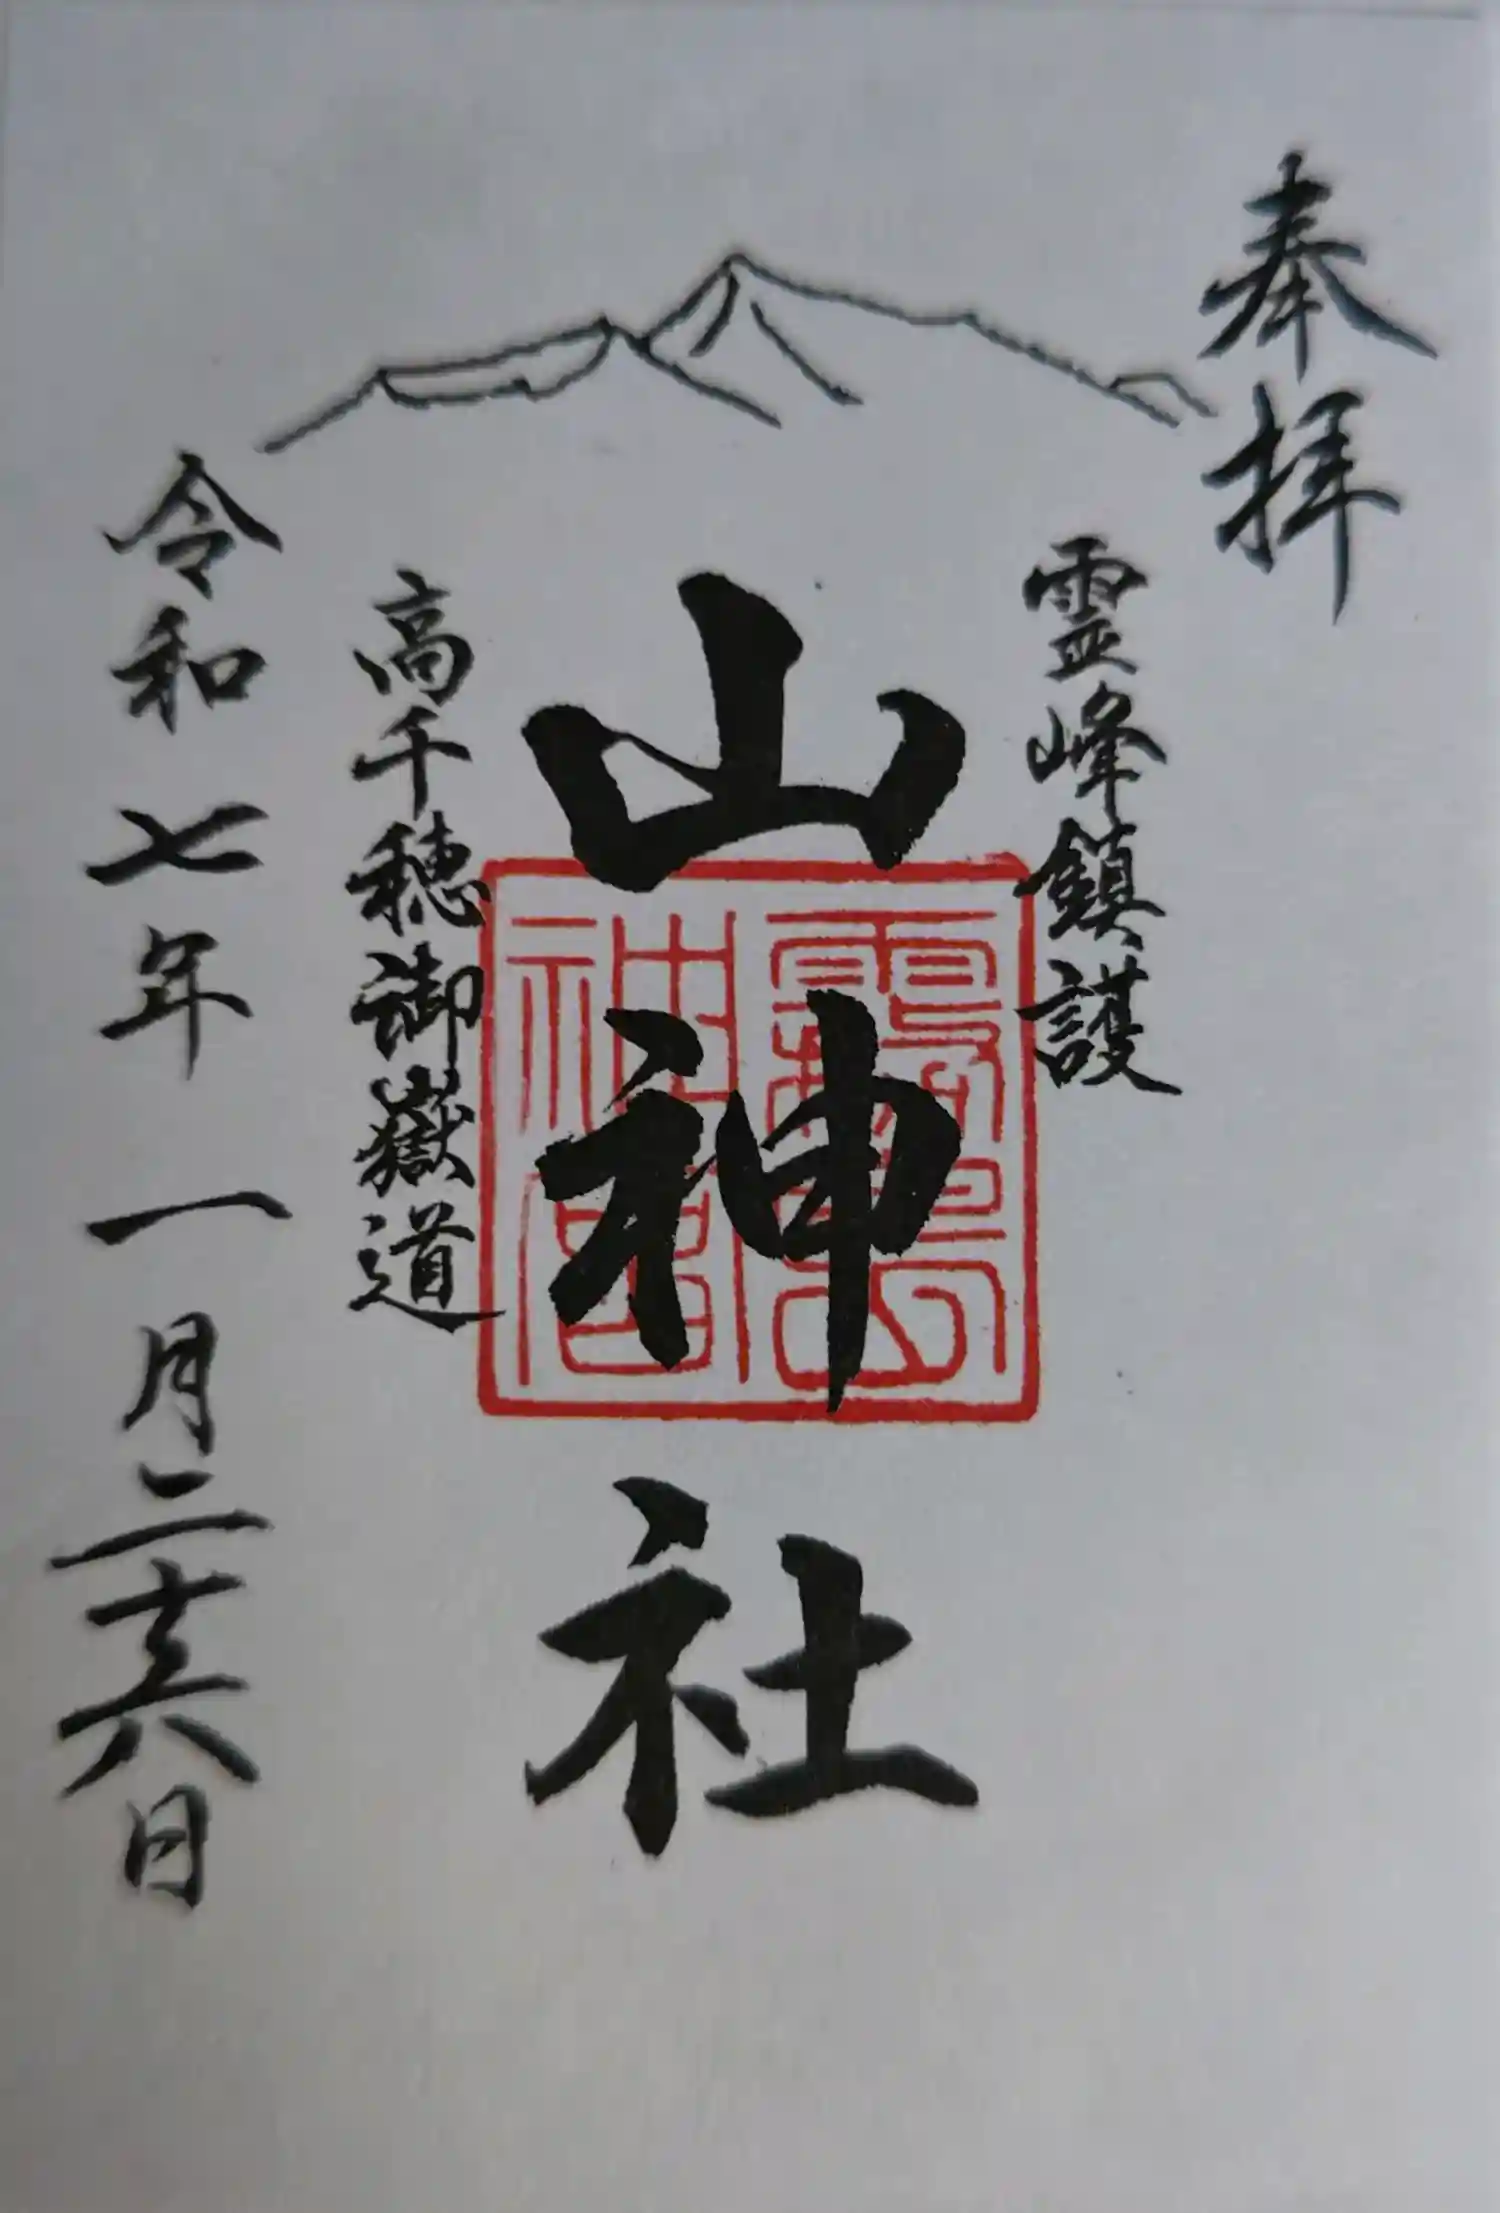 奉拝
霊峰鎮護
山神社
霧島神宮
高千穂御嶽道
令和七年一月二十六日